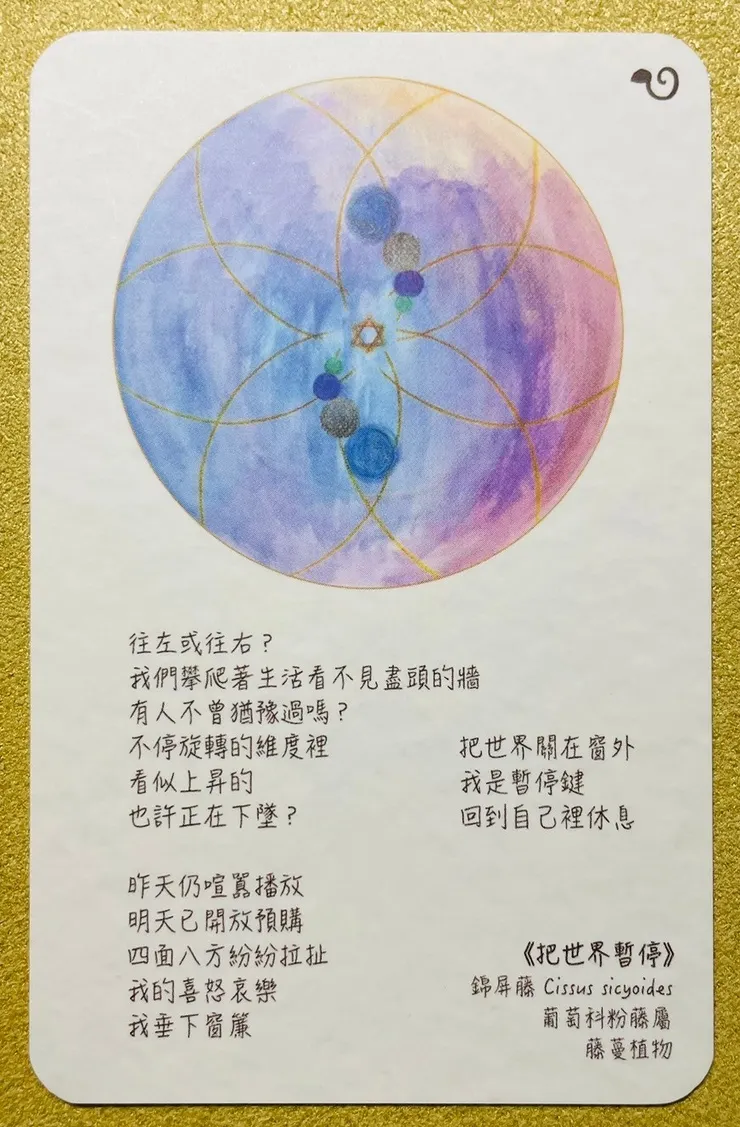 往左或往右？
我們攀爬著生活看不見盡頭的牆
有人不曾猶豫過嗎？
不停旋轉的維度裡
看似上昇的
也許正在下墜？
昨天仍喧囂播放
明天已開放預購
四面八方紛紛拉扯
我的喜怒哀樂
我垂下窗簾
把世界關在窗外
我是暫停鍵
回到自己裡休息
《把世界暫停》
錦屏藤 Cissus sicyoides
葡萄科粉藤屬
藤蔓植物